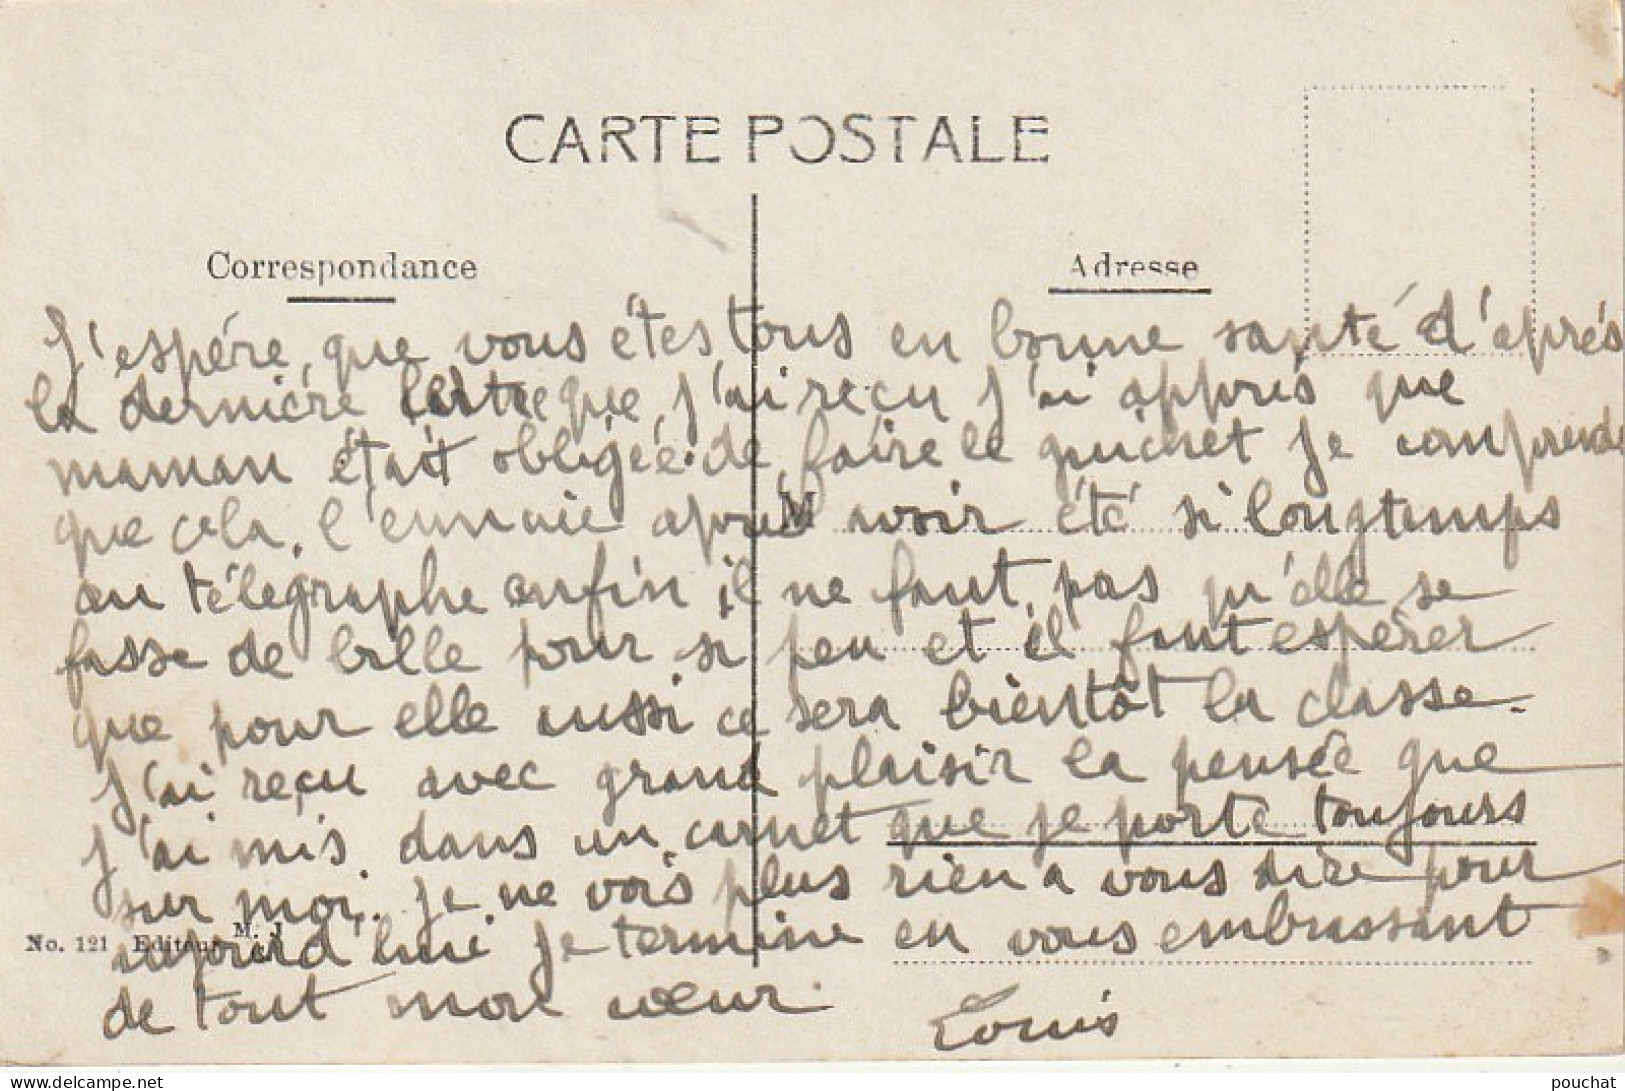 CARTE POSTALE
Correspondance
Adresse
J'espére que vous étes tous en bonne santé d'aprés
la derniére lettre que j'ai reçu j'ai appris que
maman était obligée de faire le guichet je comprends
que cela l'ennuie aprés avoir été si longtemps
au télégraphe enfin il ne faut pas qu'elle se
fasse de bille pour si peu et il faut espérer
que pour elle aussi ce sera bientôt la classe.
J'ai reçu avec grand plaisir la pensée que
j'ai mis dans un carnet que je porte toujours
sur moi. Je ne vois plus rien a vous dire pour
aujourd'hui je termine en vous embrassant
de tout mon cœur.
Louis
No. 121 Editeur M. J
delcampe.net
pouchat